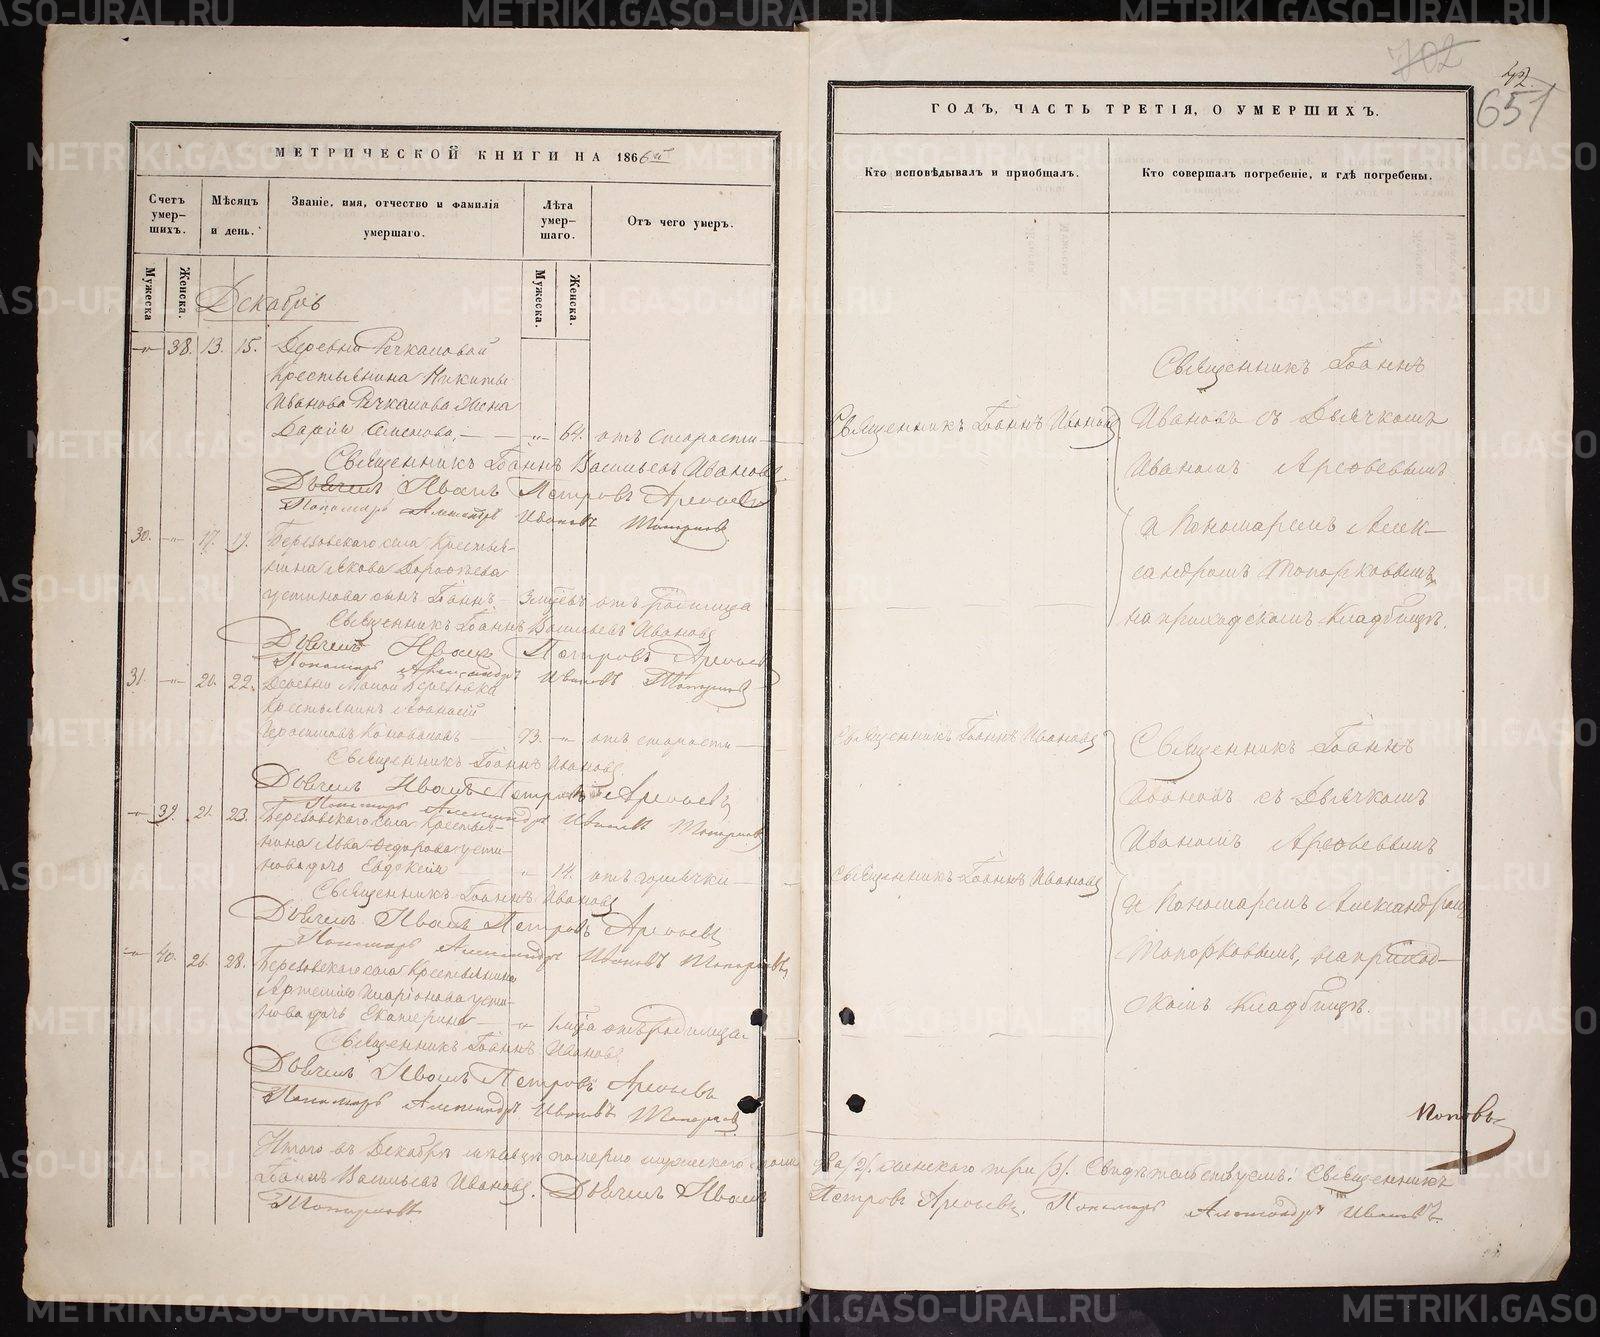 МЕТРИЧЕСКОЙ КНИГИ НА 1866й
Счетъ умер-шихъ.
Мѣсяцъ и день.
Званіе, имя, отчество и фамилія умершаго.
Лѣта умер-шаго.
Отъ чего умеръ.
Мужеска
Женска.
Мужеска.
Женска.
Декабрь
38. 13. 15. Деревни Речкаловой
Крестьянина Никиты
Иванова Речкалова жена
Дарія Семенова, 64. отъ старости
Священникъ Іоаннъ Васильевъ Ивановъ
Дьячекъ Иванъ Петровъ
Пономарь Александръ Ивановъ Топорковъ
30. 17. 19. Березовскаго села крестья-
нина Якова Дорофѣева
Устинова сынъ Іоаннъ 3 мѣсъ отъ родимца
Священникъ Іоаннъ Васильевъ Ивановъ
Дьячекъ Иванъ Петровъ
Пономарь Александръ Ивановъ Топорковъ
31. 20. 22. Деревни Малой
Крестьянинъ
Коновалов 73. отъ старости
Священникъ Іоаннъ Ивановъ
Дьячекъ Иванъ Петровъ
Пономарь Александръ Ивановъ Топорковъ
39. 21. 23. Березовскаго села крестья-
нина Льва Федорова Усти-
нова дочь Евдокія 14. отъ горячки
Священникъ Іоаннъ Ивановъ
Дьячекъ Иванъ Петровъ
Пономарь Александръ Ивановъ Топорковъ
40. 26. 28. Березовскаго села крестьянина
Иларіонова Усти-
нова дочь Екатерина 1 мѣца отъ родимца.
Священникъ Іоаннъ Ивановъ
Дьячекъ Иванъ Петровъ
Пономарь Александръ Ивановъ Топорковъ
Итого въ Декабрѣ мѣсяцѣ померло мужескаго пола
Іоаннъ Васильевъ Ивановъ. Дьячекъ Иванъ
Топорковъ
702
42
651
ГОДЪ, ЧАСТЬ ТРЕТІЯ, О УМЕРШИХЪ.
Кто исповѣдывалъ и пріобщалъ.
Кто совершалъ погребеніе, и гдѣ погребены.
Священникъ Іоаннъ Ивановъ
Священникъ Іоаннъ
Ивановъ съ Дьячкомъ
Иваномъ
и Пономаремъ Алек-
сандромъ Топорковымъ
на приходскомъ кладбищѣ.
Священникъ Іоаннъ Ивановъ
Священникъ Іоаннъ Ивановъ
Священникъ Іоаннъ
Ивановъ съ Дьячкомъ
Иваномъ
и Пономаремъ Александромъ
Топорковымъ, на приход-
скомъ кладбищѣ.
Поповъ
два /2/. женскаго три /3/. Свидѣтельствуемъ: Священникъ
Петровъ Пономарь Александръ Ивановъ
METRIKI.GASO-URAL.RU